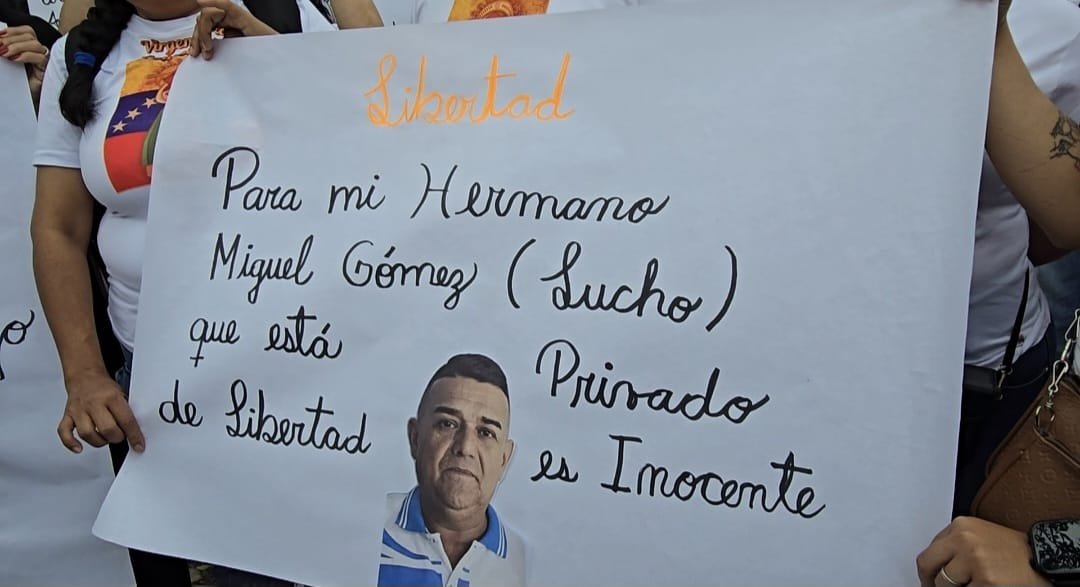 Virgen
Libertad
Para mi Hermano
Miguel Gómez (Lucho)
que está Privado
de Libertad es Imocente